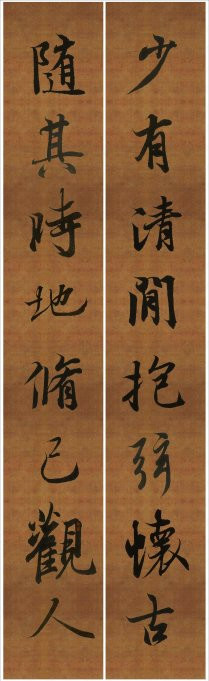 少有清閒抱弦懷古
隨其時地脩己觀人